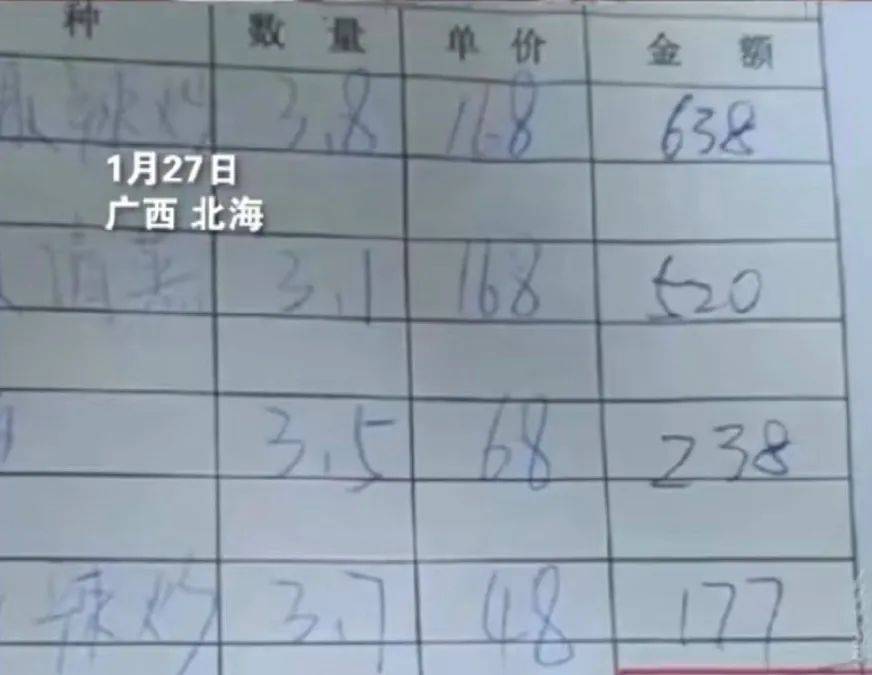 种 数量 单价 金额
辣炒 3.8 168 638
1月27日
广西 北海
清蒸 3.1 168 520
3.5 68 238
辣炒 3.7 48 177